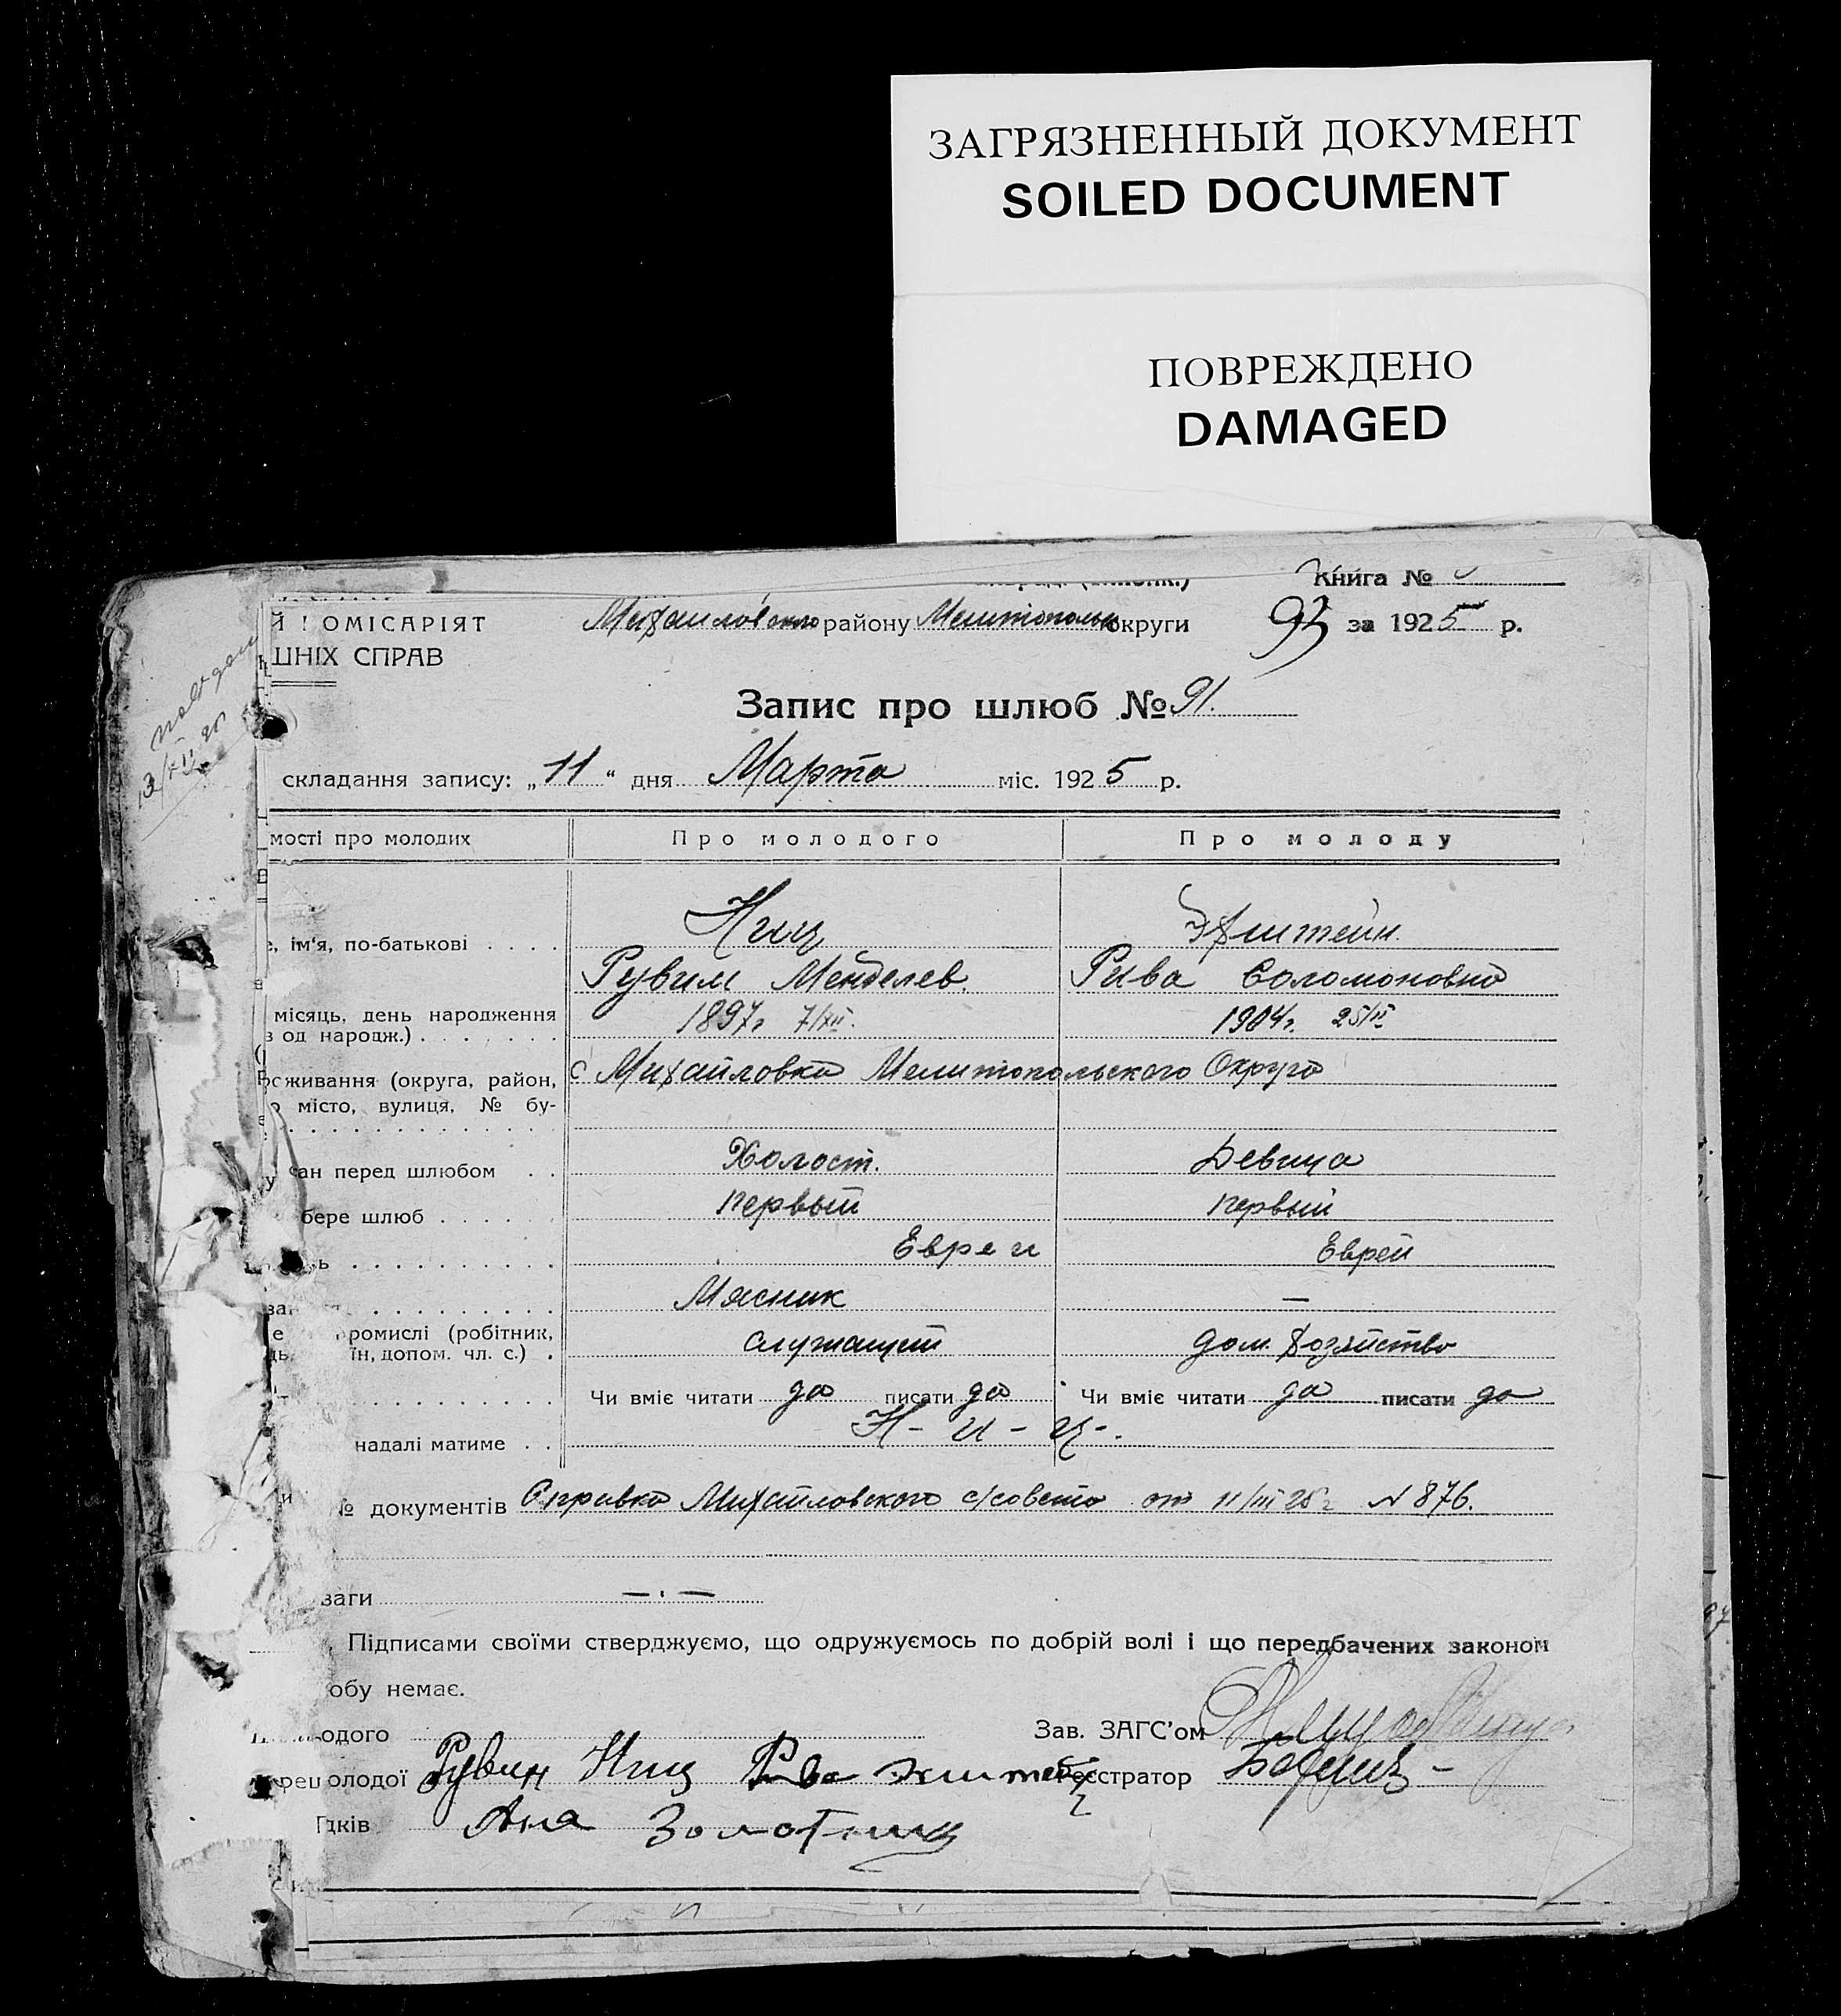 ЗАГРЯЗНЕННЫЙ ДОКУМЕНТ
SOILED DOCUMENT
ПОВРЕЖДЕНО
DAMAGED
Книга №
Й ОМІСАРІЯТ Михайловского району Мелитопольск округи 93 за 1925 р.
ШНІХ СПРАВ
Запис про шлюб № 91.
складання запису: „11“ дня Марта міс. 1925 р.
мості про молодих Про молодого Про молоду
Ниц Эпштейн.
е, ім'я, по-батькові . . . .
Рувим Менделев. Рива Соломоновна
місяць, день народження 1897г 7/XII. 1904г. 25/II
в од народж.) . . . . . . .
оживання (округа, район, с Михайловка Мелитопольского Округа
о місто, вулиця, № бу-
ан перед шлюбом . . Холост. Девица
бере шлюб . . . . . . первый первый
ь . . . . . . . . . . Еврей Еврей
Мясник —
ромислі (робітник, служащий дом. хозяйство
їн, допом. чл. с.) .
Чи вміє читати да писати да Чи вміє читати да писати да
надалі матиме . . Н - и - ц -.
№ документів Справка Михайловского с/совета от 11/III 25г N 876.
ваги — . —
Підписами своїми стверджуємо, що одружуємось по добрій волі і що передбачених законом
обу немає.
одого Зав. ЗАГС'ом
олодої Рувин Ниц Рива Эпштейн Реєстратор
дків Ана Золотниц